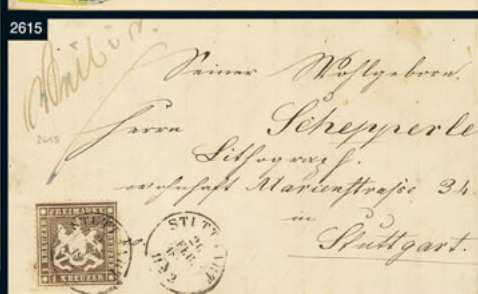 2615
Seiner Wohlgeborn.
Herrn Schepperle
2615
Lithograph.
wohnhaft Marienstraße 34.
in
Stuttgart.
FREIMARKE
1 KREUZER
STUTTGART
21
FEB.